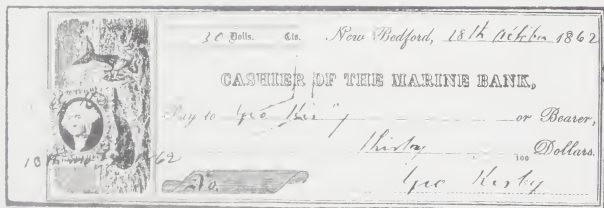 30 Dolls. Cts. New Bedford, 18th October 1862
CASHIER OF THE MARINE BANK,
Pay to Geo Kirby or Bearer,
Thirty 100 Dollars.
Geo Kirby